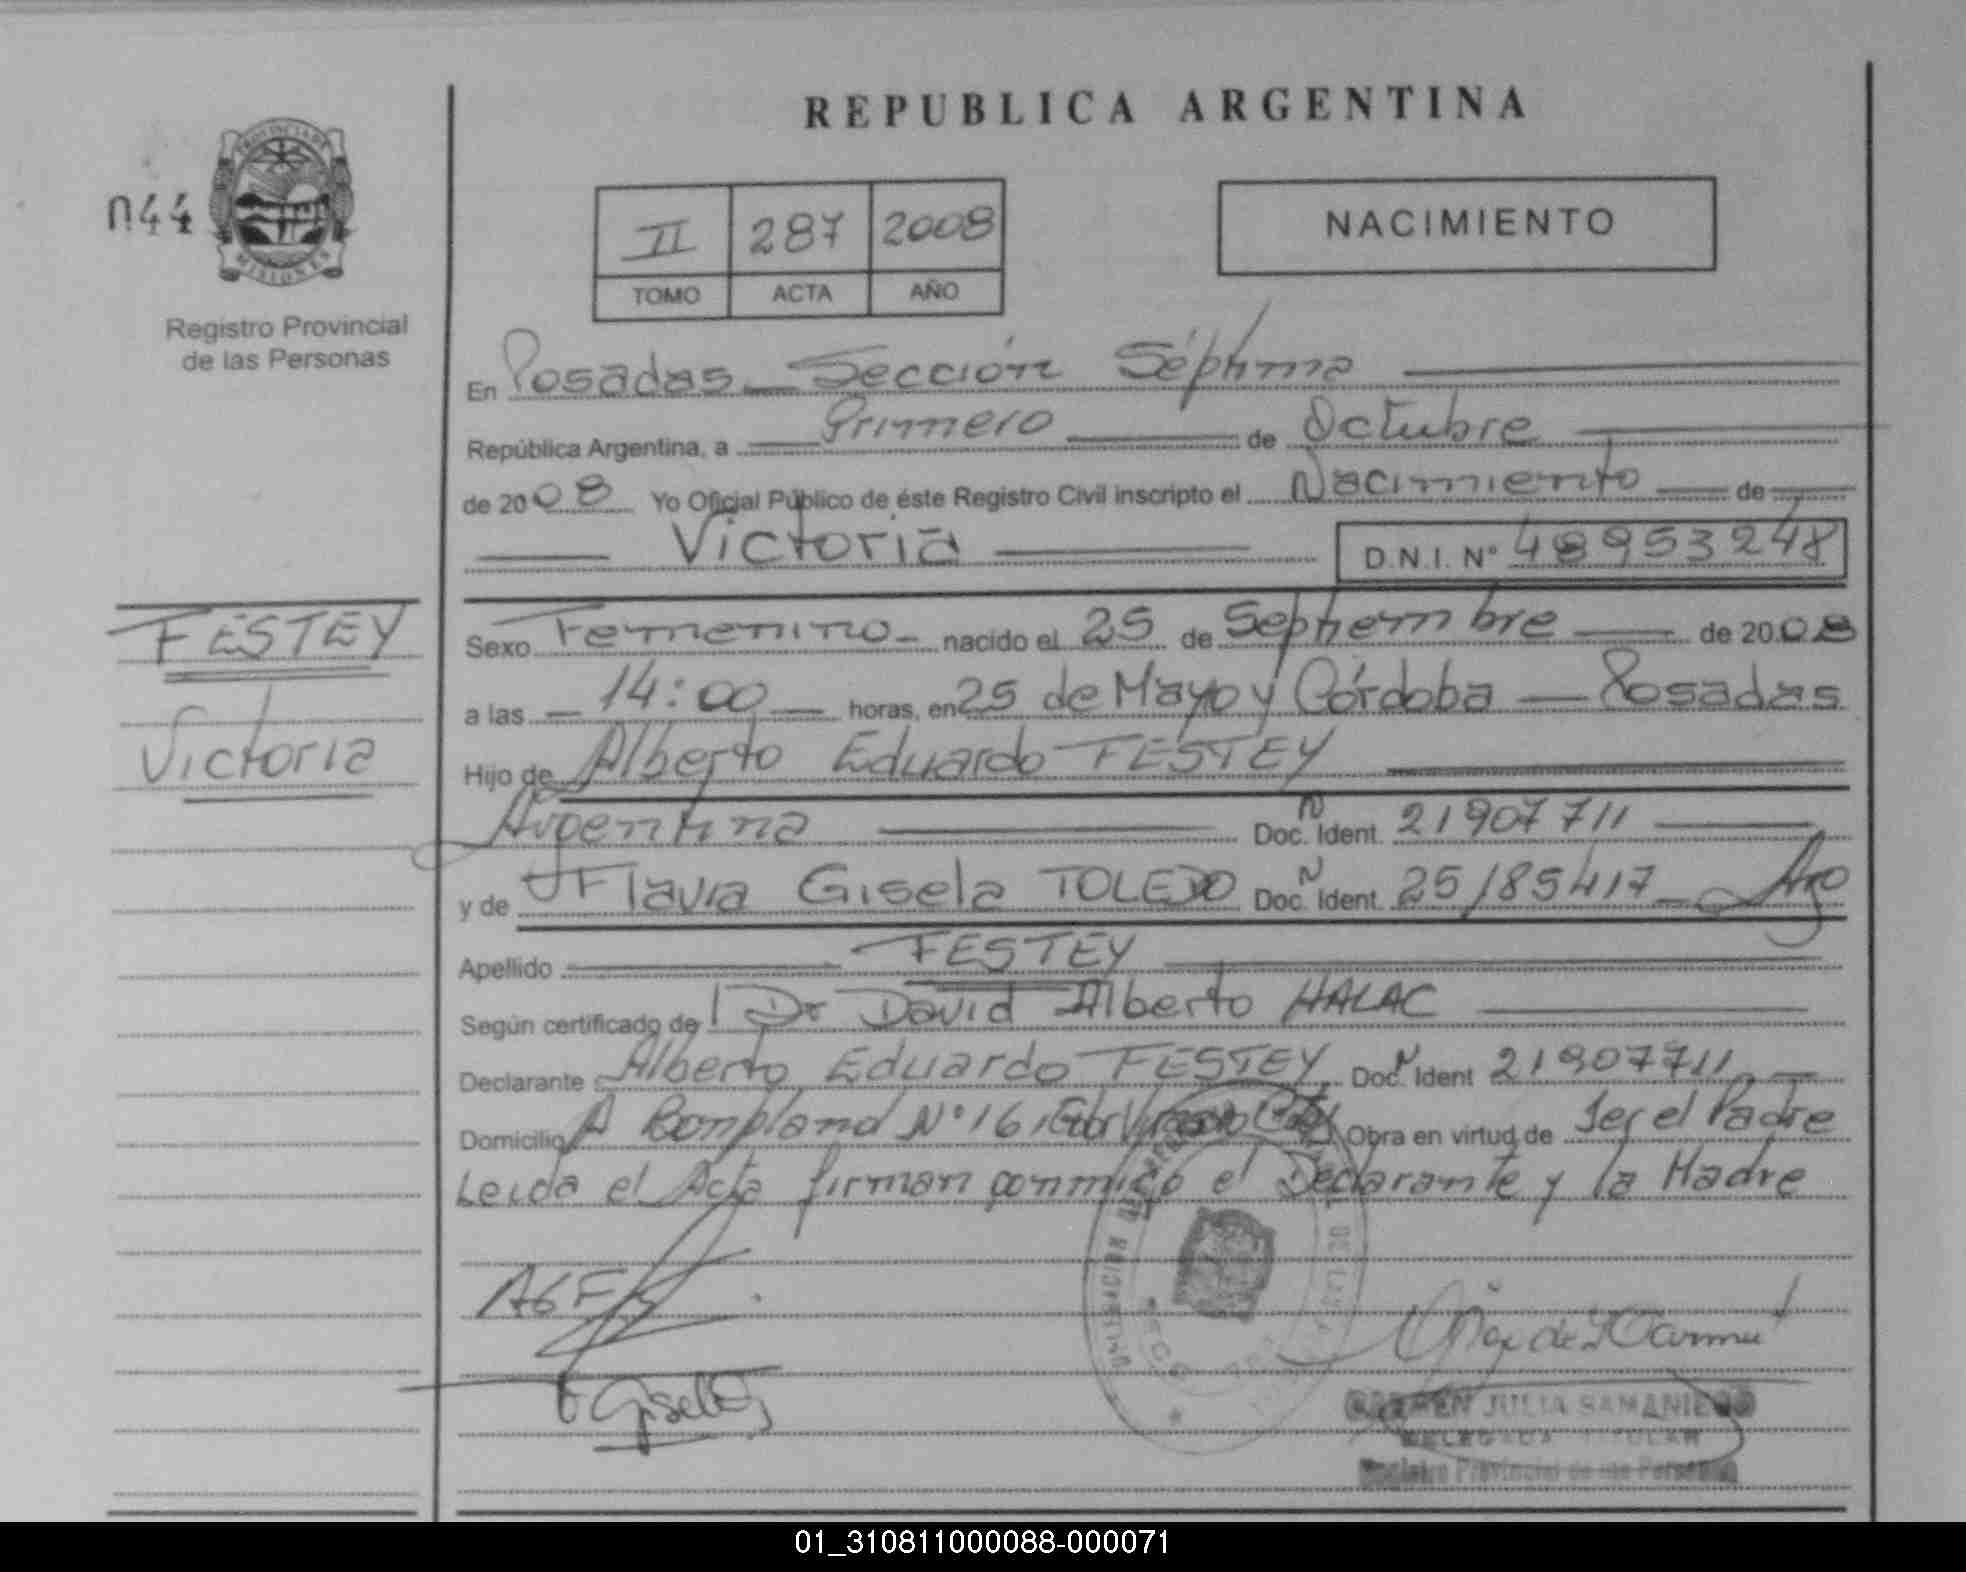 REPUBLICA ARGENTINA
PROVINCIA DE
MISIONES
Registro Provincial
de las Personas
II 287 2008
TOMO ACTA AÑO
NACIMIENTO
En Posadas - Sección Séptima
República Argentina, a Primero de Octubre
de 2008 Yo Oficial Público de éste Registro Civil inscripto el Nacimiento de
Victoria D.N.I. N° 48953248
FESTEY
Victoria
Sexo Femenino - nacido el 25 de Septiembre de 2008
a las 14:00 horas, en 25 de Mayo y Córdoba - Posadas
Hijo de Alberto Eduardo FESTEY
Argentina Doc. Ident. N 21907711
y de Flavia Gisela TOLEDO Doc. Ident. N 25185417 - Arg
Apellido FESTEY
Según certificado del Dr David Alberto HALAC
Declarante Alberto Eduardo FESTEY Doc. N Ident 21907711
Domicilio A Bonpland N° 16 Obra en virtud de Ser el Padre
Leida el Acta firman conmigo el Declarante y la Madre
CARMEN JULIA SAMANIEGO
DELEGADA TITULAR
Registro Provincial de las Personas
01_310811000088-000071